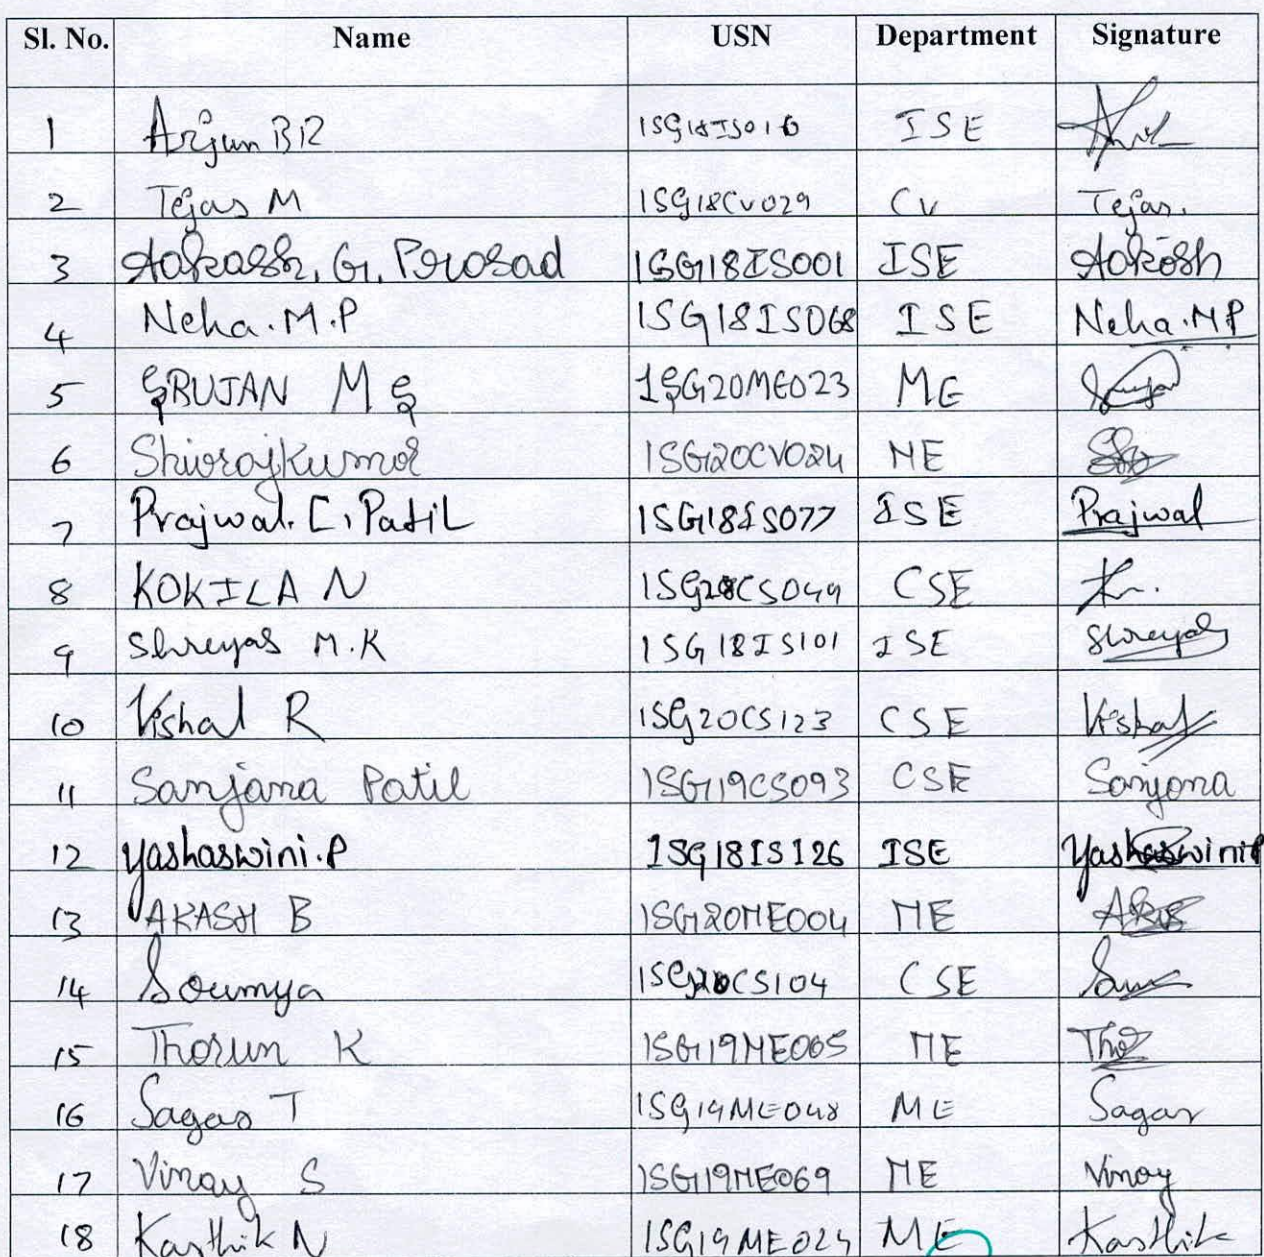 Sl. No. Name USN Department Signature
1 Arjun B R 1SG18IS016 ISE
2 Tejas M 1SG18CV029 CV Tejas.
3 Aakash. G. Prosad 1SG18IS001 ISE Aakash
4 Neha.M.P 1SG18IS068 ISE Neha.MP
5 SRUJAN M S 1SG20ME023 ME
6 Shivarajkumar 1SG20CV024 ME
7 Prajwal. C. Patil 1SG18IS077 ISE Prajwal
8 KOKILA N 1SG20CS049 CSE
9 Shreyas M.K 1SG18IS101 ISE Shreyas
10 Vishal R 1SG20CS123 CSE Vishal
11 Sanjana Patil 1SG19CS093 CSE Sanjana
12 Yashaswini.P 1SG18IS126 ISE Yashaswini P
13 AKASH B 1SG20ME004 ME
14 Soumya 1SG20CS104 CSE
15 Thorun K 1SG19ME065 ME
16 Sagar T 1SG19ME048 ME Sagar
17 Vinay S 1SG19ME069 ME Vinay
18 Karthik N 1SG19ME024 ME Karthik